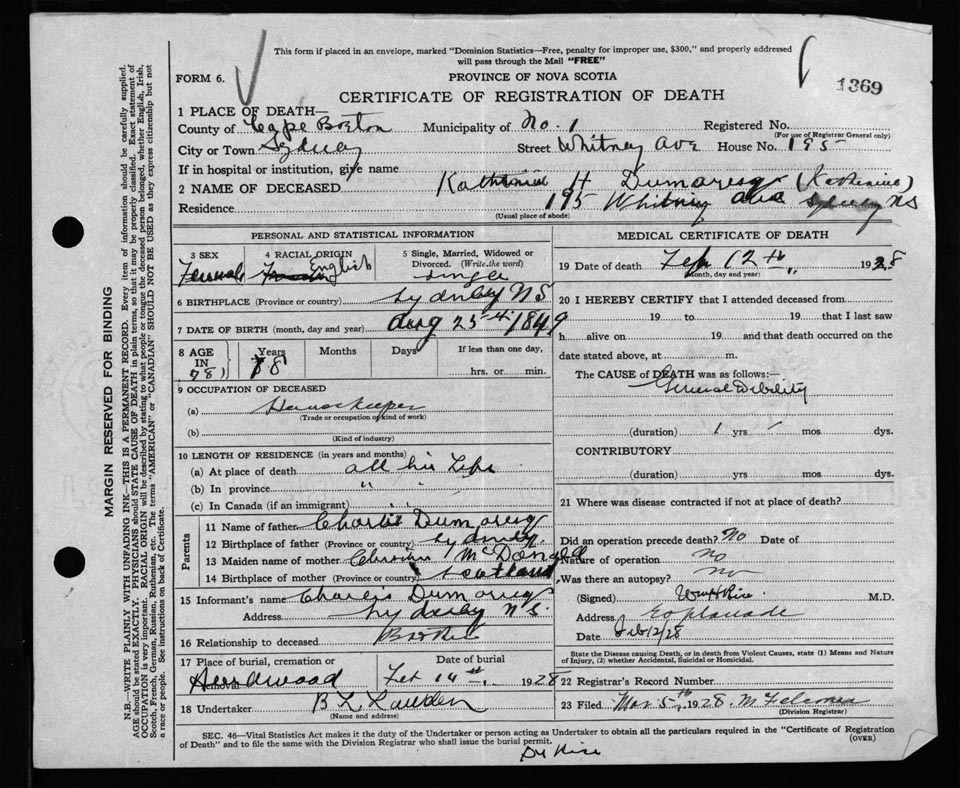 This form if placed in an envelope, marked "Dominion Statistics—Free, penalty for improper use, $300," and properly addressed
will pass through the Mail "FREE"
FORM 6.
PROVINCE OF NOVA SCOTIA
1369
CERTIFICATE OF REGISTRATION OF DEATH
1 PLACE OF DEATH—
County of Cape Breton Municipality of No. 1 Registered No.
(For use of Registrar General only)
City or Town Sydney Street Whitney Ave House No. 195
If in hospital or institution, give name
2 NAME OF DECEASED H Dumaresq (Katherine)
Residence 195 Whitney Ave Sydney NS
(Usual place of abode)
PERSONAL AND STATISTICAL INFORMATION
3 SEX Female
4 RACIAL ORIGIN English
5 Single, Married, Widowed or Divorced. (Write the word) Single
6 BIRTHPLACE (Province or country) Sydney NS
7 DATE OF BIRTH (month, day and year) Aug 25th 1849
8 AGE IN 78 Years 78 Months Days If less than one day,
hrs. or min.
9 OCCUPATION OF DECEASED
(a) Housekeeper
(Trade or occupation or kind of work)
(b)
(Kind of industry)
10 LENGTH OF RESIDENCE (in years and months)
(a) At place of death all his Life
(b) In province " "
(c) In Canada (if an immigrant)
Parents
11 Name of father Charles Dumaresq
12 Birthplace of father (Province or country) Sydney
13 Maiden name of mother McDonald
14 Birthplace of mother (Province or country) Scotland
15 Informant's name Charles Dumaresq
Address Sydney N S
16 Relationship to deceased Brother
17 Place of burial, cremation or removal Hardwood
Date of burial Feb 14th 1928
18 Undertaker
(Name and address)
MEDICAL CERTIFICATE OF DEATH
19 Date of death Feb 12th 1928
(Month, day and year)
20 I HEREBY CERTIFY that I attended deceased from
19 to 19 that I last saw
h alive on 19 and that death occurred on the
date stated above, at m.
The CAUSE of DEATH was as follows:—
General Debility
(duration) 1 yrs mos dys.
CONTRIBUTORY
(duration) yrs mos dys.
21 Where was disease contracted if not at place of death?
Did an operation precede death? No Date of
Nature of operation No
Was there an autopsy? No
(Signed) M.D.
Address Esplanade
Date Feb 12/28
State the Disease causing Death, or in death from Violent Causes, state (1) Means and Nature
of Injury, (2) whether Accidental, Suicidal or Homicidal.
22 Registrar's Record Number
23 Filed Mar 5th 1928
(Division Registrar)
SEC. 46—Vital Statistics Act makes it the duty of the Undertaker or person acting as Undertaker to obtain all the particulars required in the "Certificate of Registration
of Death" and to file the same with the Division Registrar who shall issue the burial permit.
(OVER)
MARGIN RESERVED FOR BINDING
N.B.—WRITE PLAINLY WITH UNFADING INK—THIS IS A PERMANENT RECORD. Every item of information should be carefully supplied.
AGE should be stated EXACTLY. PHYSICIANS should STATE CAUSE OF DEATH in plain terms, so that it may be properly classified. Exact statement of
OCCUPATION is very important. RACIAL ORIGIN will be described by stating to what people or tongue the deceased person belonged, whether English, Irish,
Scotch, French, German, Russian, Ruthenian, etc. The terms "AMERICAN" or "CANADIAN" SHOULD NOT BE USED as they express citizenship but not
a race or people. See instructions on back of Certificate.